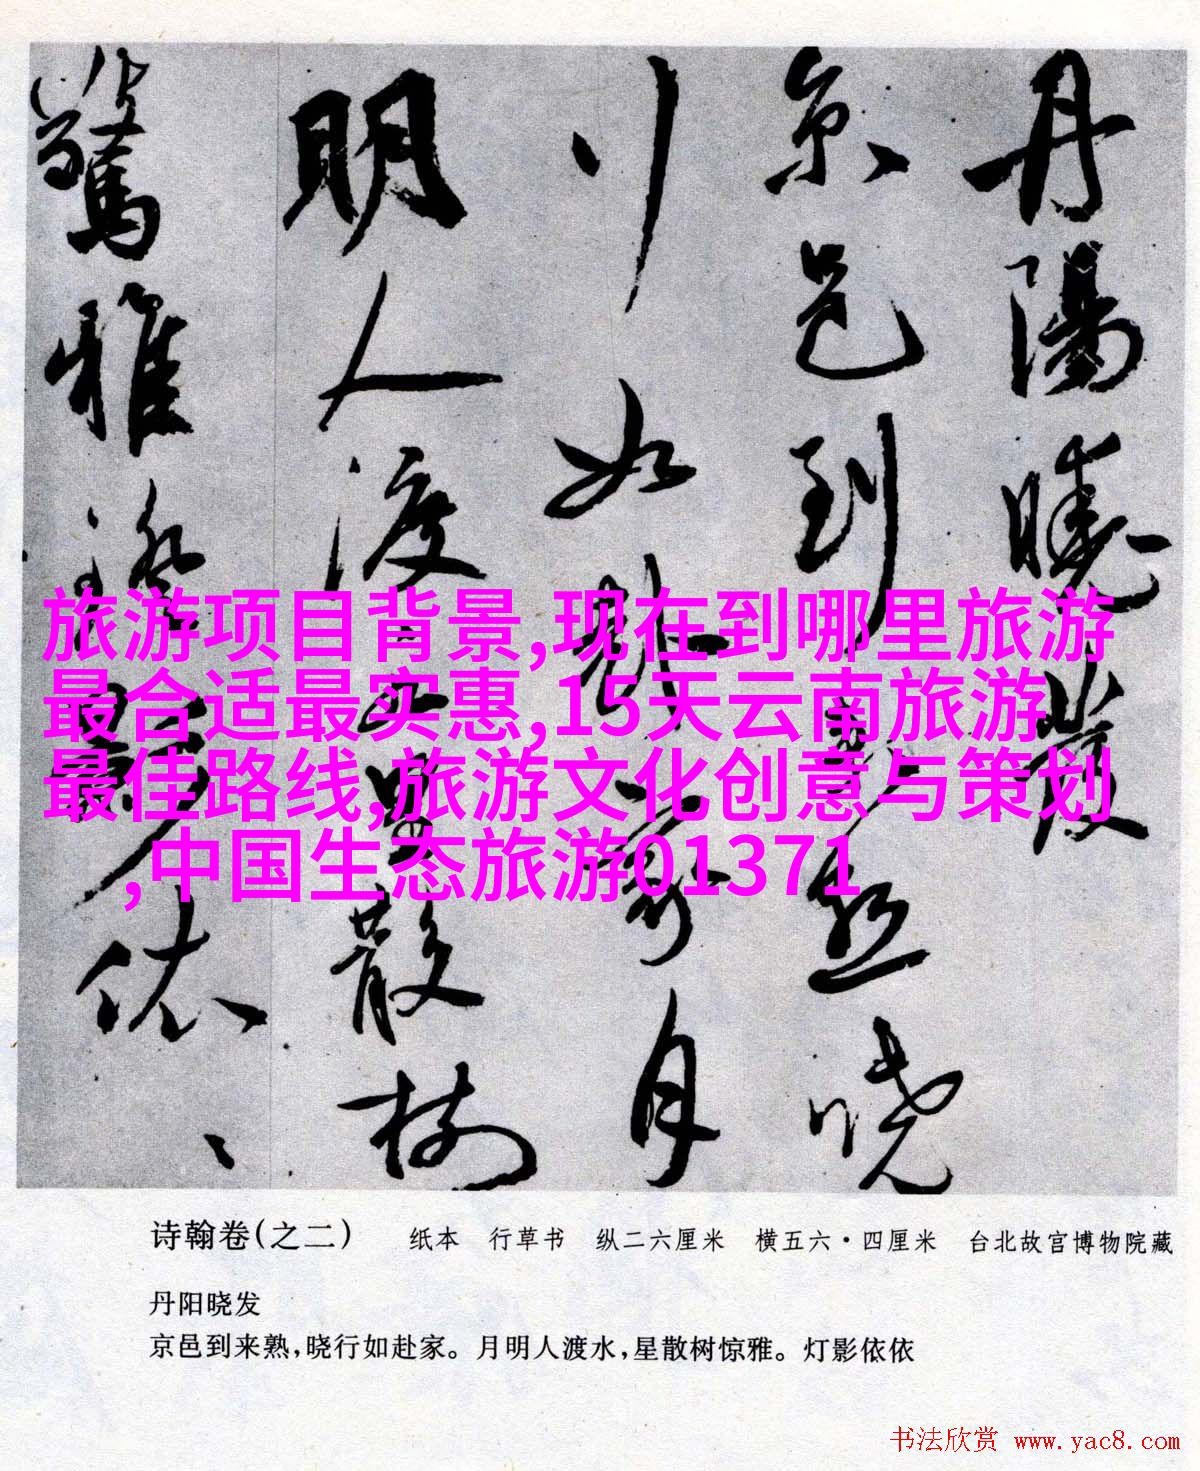 丹陽曉發
京邑到來熟曉
行如赴家月
明人渡水星散樹
驚雅燈影依依
旅游项目背景,现在到哪里旅游
最合适最实惠,15天云南旅游
最佳路线,旅游文化创意与策划
,中国生态旅游01371
诗翰卷(之二) 纸本 行草书 纵二六厘米 横五六·四厘米 台北故宫博物院藏
丹阳晓发
京邑到来熟,晓行如赴家。月明人渡水,星散树惊雅。灯影依依
书法欣赏 www.yac8.com